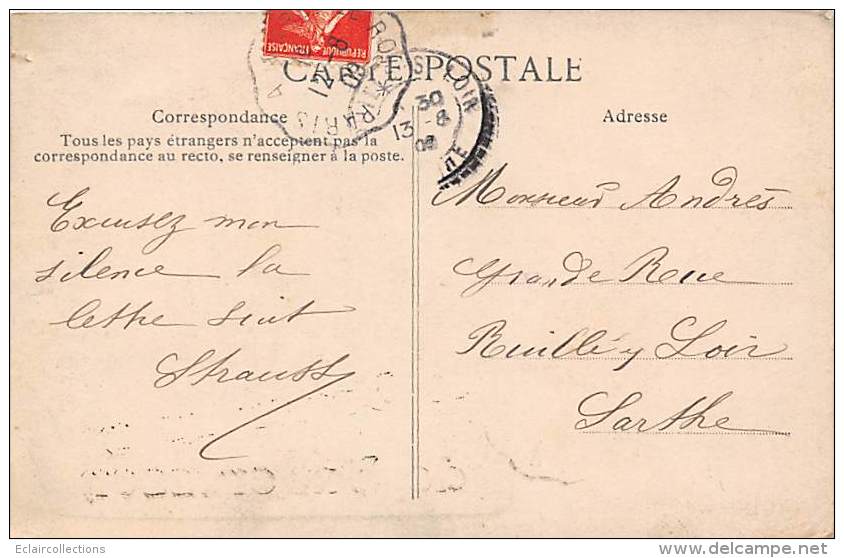 REPUBLIQUE FRANÇAISE
CARTE POSTALE
Correspondance
Tous les pays étrangers n'acceptent pas la
correspondance au recto, se renseigner à la poste.
Adresse
PARIS
12 - 8
13 - 8
LOIR
Excusez mon
silence la
lettre suit
Strauss
Monsieur Andrès
Grande Rue
Ruillé y Loir
Sarthe
Eclaircollections
www.delcampe.net